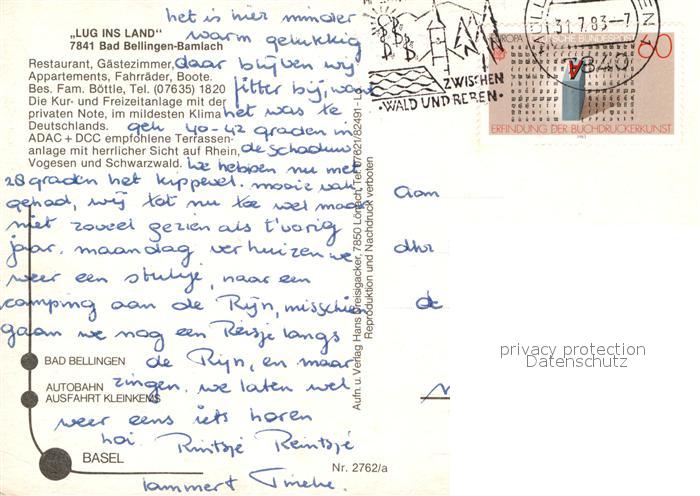 „LUG INS LAND"
7841 Bad Bellingen-Bamlach
Restaurant, Gästezimmer,
Appartements, Fahrräder, Boote.
Bes. Fam. Böttle, Tel. (07635) 1820
Die Kur- und Freizeitanlage mit der
privaten Note, im mildesten Klima
Deutschlands.
ADAC + DCC empfohlene Terrassen-
anlage mit herrlicher Sicht auf Rhein,
Vogesen und Schwarzwald.
het is hier minder
warm gelukkig
daar blijven wij
fitter bij, want
het was te
gek 40-42 graden in
de schaduw
We hebben nu met
28 graden het
gehad, wij tot nu toe wel maar
niet zoveel gezien als t'vorig
jaar. maandag verhuizen we
weer een stukje, naar een
camping aan de Rijn, misschien
gaan we nog een Reisje langs
de Rijn, en maar
zingen. we laten wel
weer eens iets horen
hoi Rintsje Reintsje
lammert Tineke.
BAD BELLINGEN
AUTOBAHN
AUSFAHRT KLEINKEMS
BASEL
Nr. 2762/a
Aufn. u. Verlag Hans Dreisigacker, 7850 Lörrach, Tel. 07621/82491 - Lö
Reproduktion und Nachdruck verboten
Aan
dhr
de
ZWISCHEN
·WALD UND REBEN·
31.7.83-7
7840
EUROPA DEUTSCHE BUNDESPOST
60
ERFINDUNG DER BUCHDRUCKERKUNST
1983
privacy protection
Datenschutz